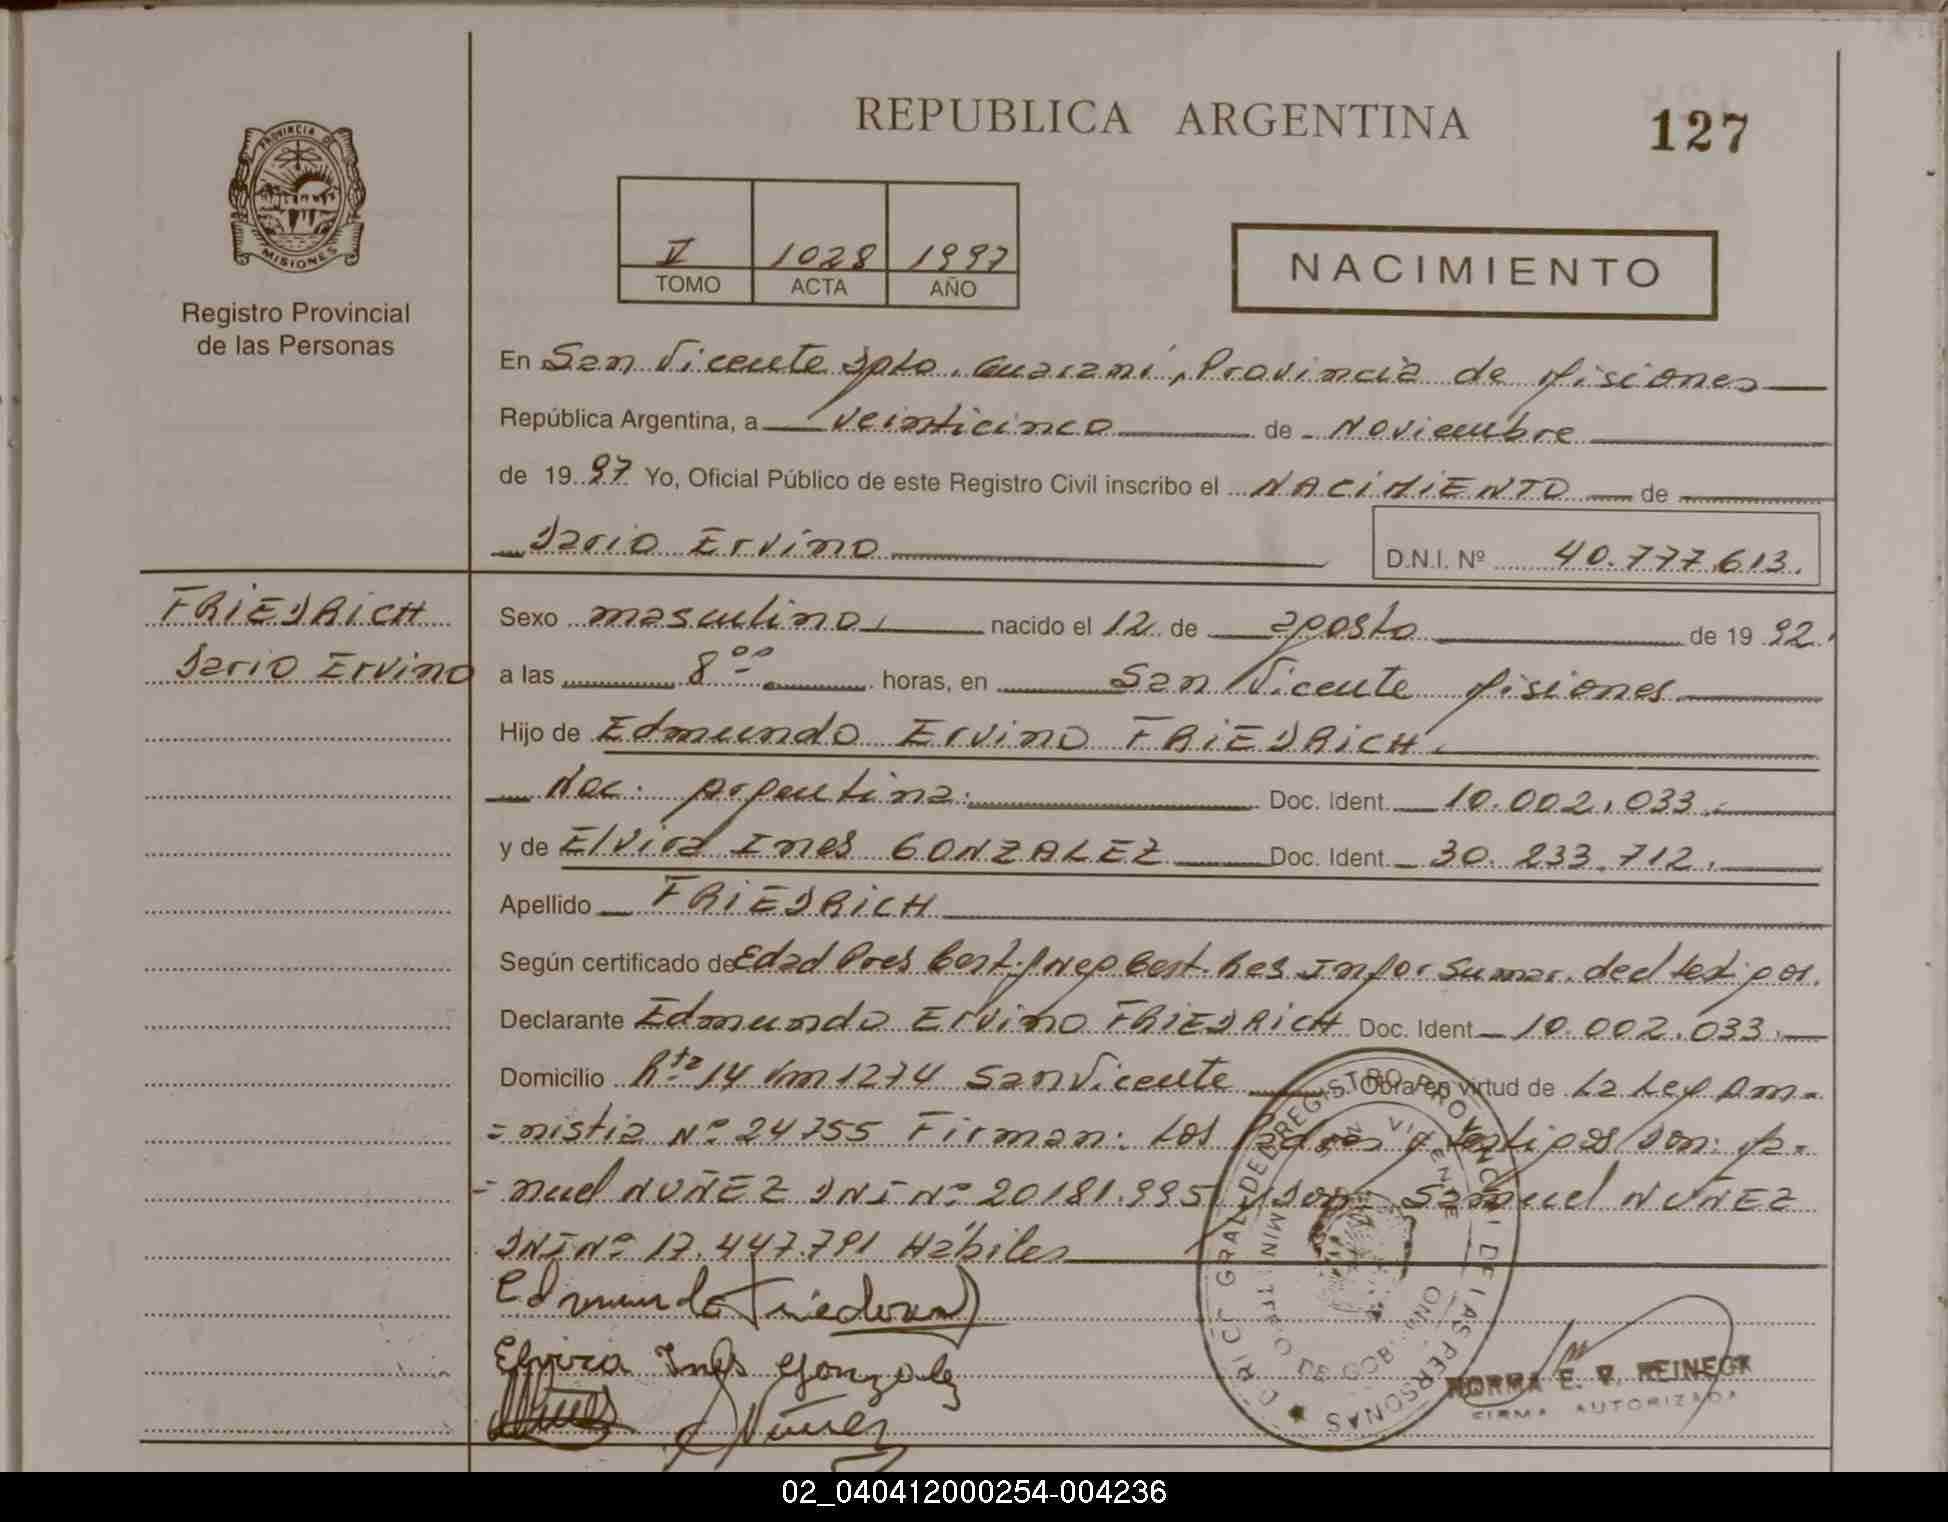 REPUBLICA ARGENTINA
127
PROVINCIA DE
MISIONES
Registro Provincial
de las Personas
V 1028 1997
TOMO ACTA AÑO
NACIMIENTO
En San Vicente Dpto. Guaraní, Provincia de Misiones
República Argentina, a veinticinco de Noviembre
de 19 97 Yo, Oficial Público de este Registro Civil inscribo el NACIMIENTO de
Dario Ervino
D.N.I. Nº 40.777.613.
FRIEDRICH
Dario Ervino
Sexo masculino, nacido el 12 de agosto de 19 92.
a las 8 00 horas, en San Vicente Misiones
Hijo de Edmundo Ervino FRIEDRICH.
Nac: Argentina. Doc. Ident. 10.002.033.
y de Elvira Ines GONZALEZ Doc. Ident. 30.233.712.
Apellido FRIEDRICH
Según certificado de Edad Pres Cert. Neg Cert. Res Infor Sumar. decl testigos.
Declarante Edmundo Ervino FRIEDRICH Doc. Ident. 10.002.033.
Domicilio Rta 14 Km 1274 San Vicente Obra en virtud de La Ley Am-
=nistia Nº 24755 Firman: Los Padres y testigos Don: Ma-
=nuel NUÑEZ DNI Nº 20181.995 y Don: Samuel NUÑEZ
DNI Nº 17.447.791 Hábiles
Edmundo Friedrich
Elvira Inés Gonzalez
Nuñez
NORMA E. V. REINECK
FIRMA AUTORIZADA
REGISTRO PROVINCIAL DE LAS PERSONAS
SAN VICENTE
02_040412000254-004236